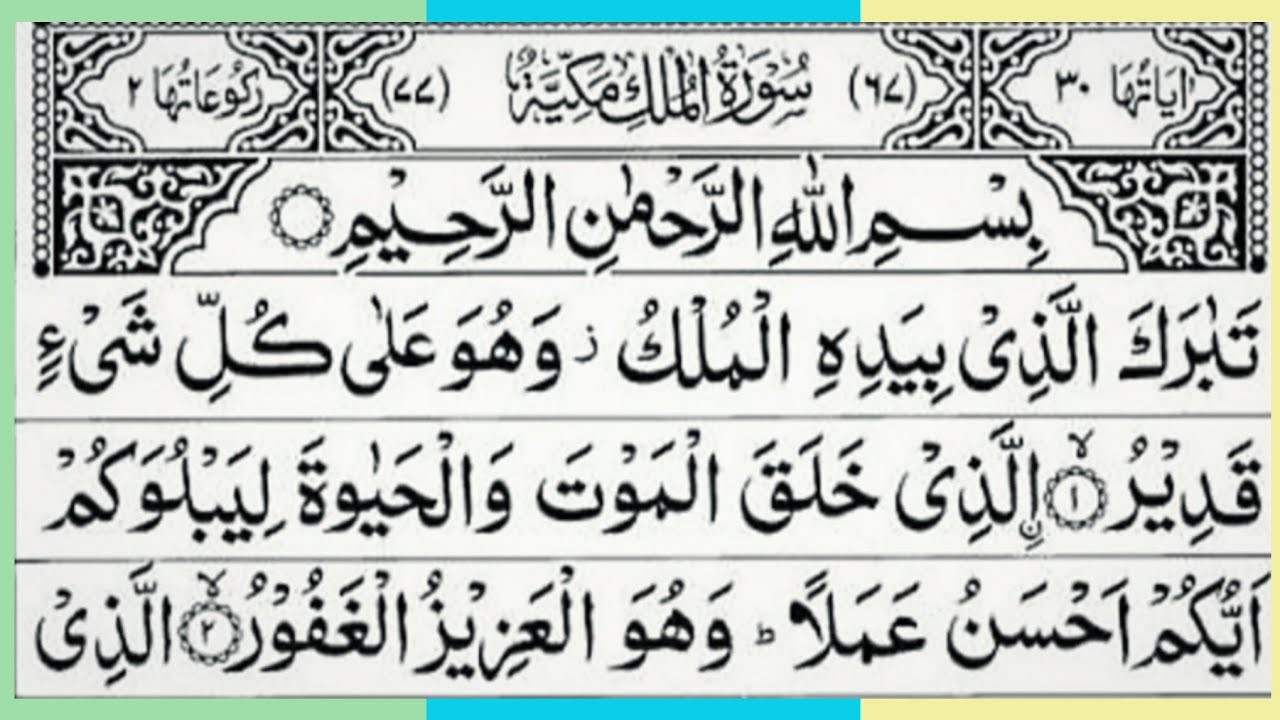 اٰیَاتُهَا ٣٠ (٦٧) سُوْرَةُ الْمُلْكِ مَكِّيَّةٌ (٧٧) رُكُوْعَاتُهَا ٢
بِسْمِ اللهِ الرَّحْمٰنِ الرَّحِيْمِ
تَبٰرَكَ الَّذِیْ بِيَدِهِ الْمُلْكُ ز وَهُوَ عَلٰى كُلِّ شَیْءٍ
قَدِيْرُ ۙ﴿١﴾ اِۨلَّذِیْ خَلَقَ الْمَوْتَ وَالْحَيٰوةَ لِيَبْلُوَكُمْ
اَيُّكُمْ اَحْسَنُ عَمَلًا ؕ وَهُوَ الْعَزِيْزُ الْغَفُوْرُ ۙ﴿٢﴾ الَّذِیْ